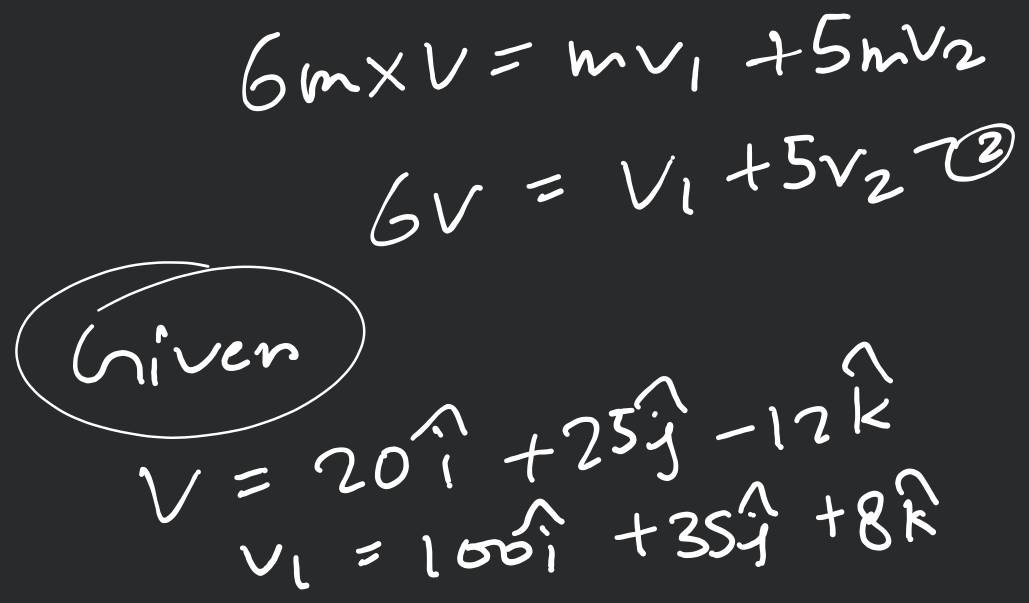 6m×V = mv₁ + 5mv₂
6V = V₁ + 5v₂ —②
Given
V = 20î + 25ĵ - 12k̂
v₁ = 100î + 35ĵ + 8k̂